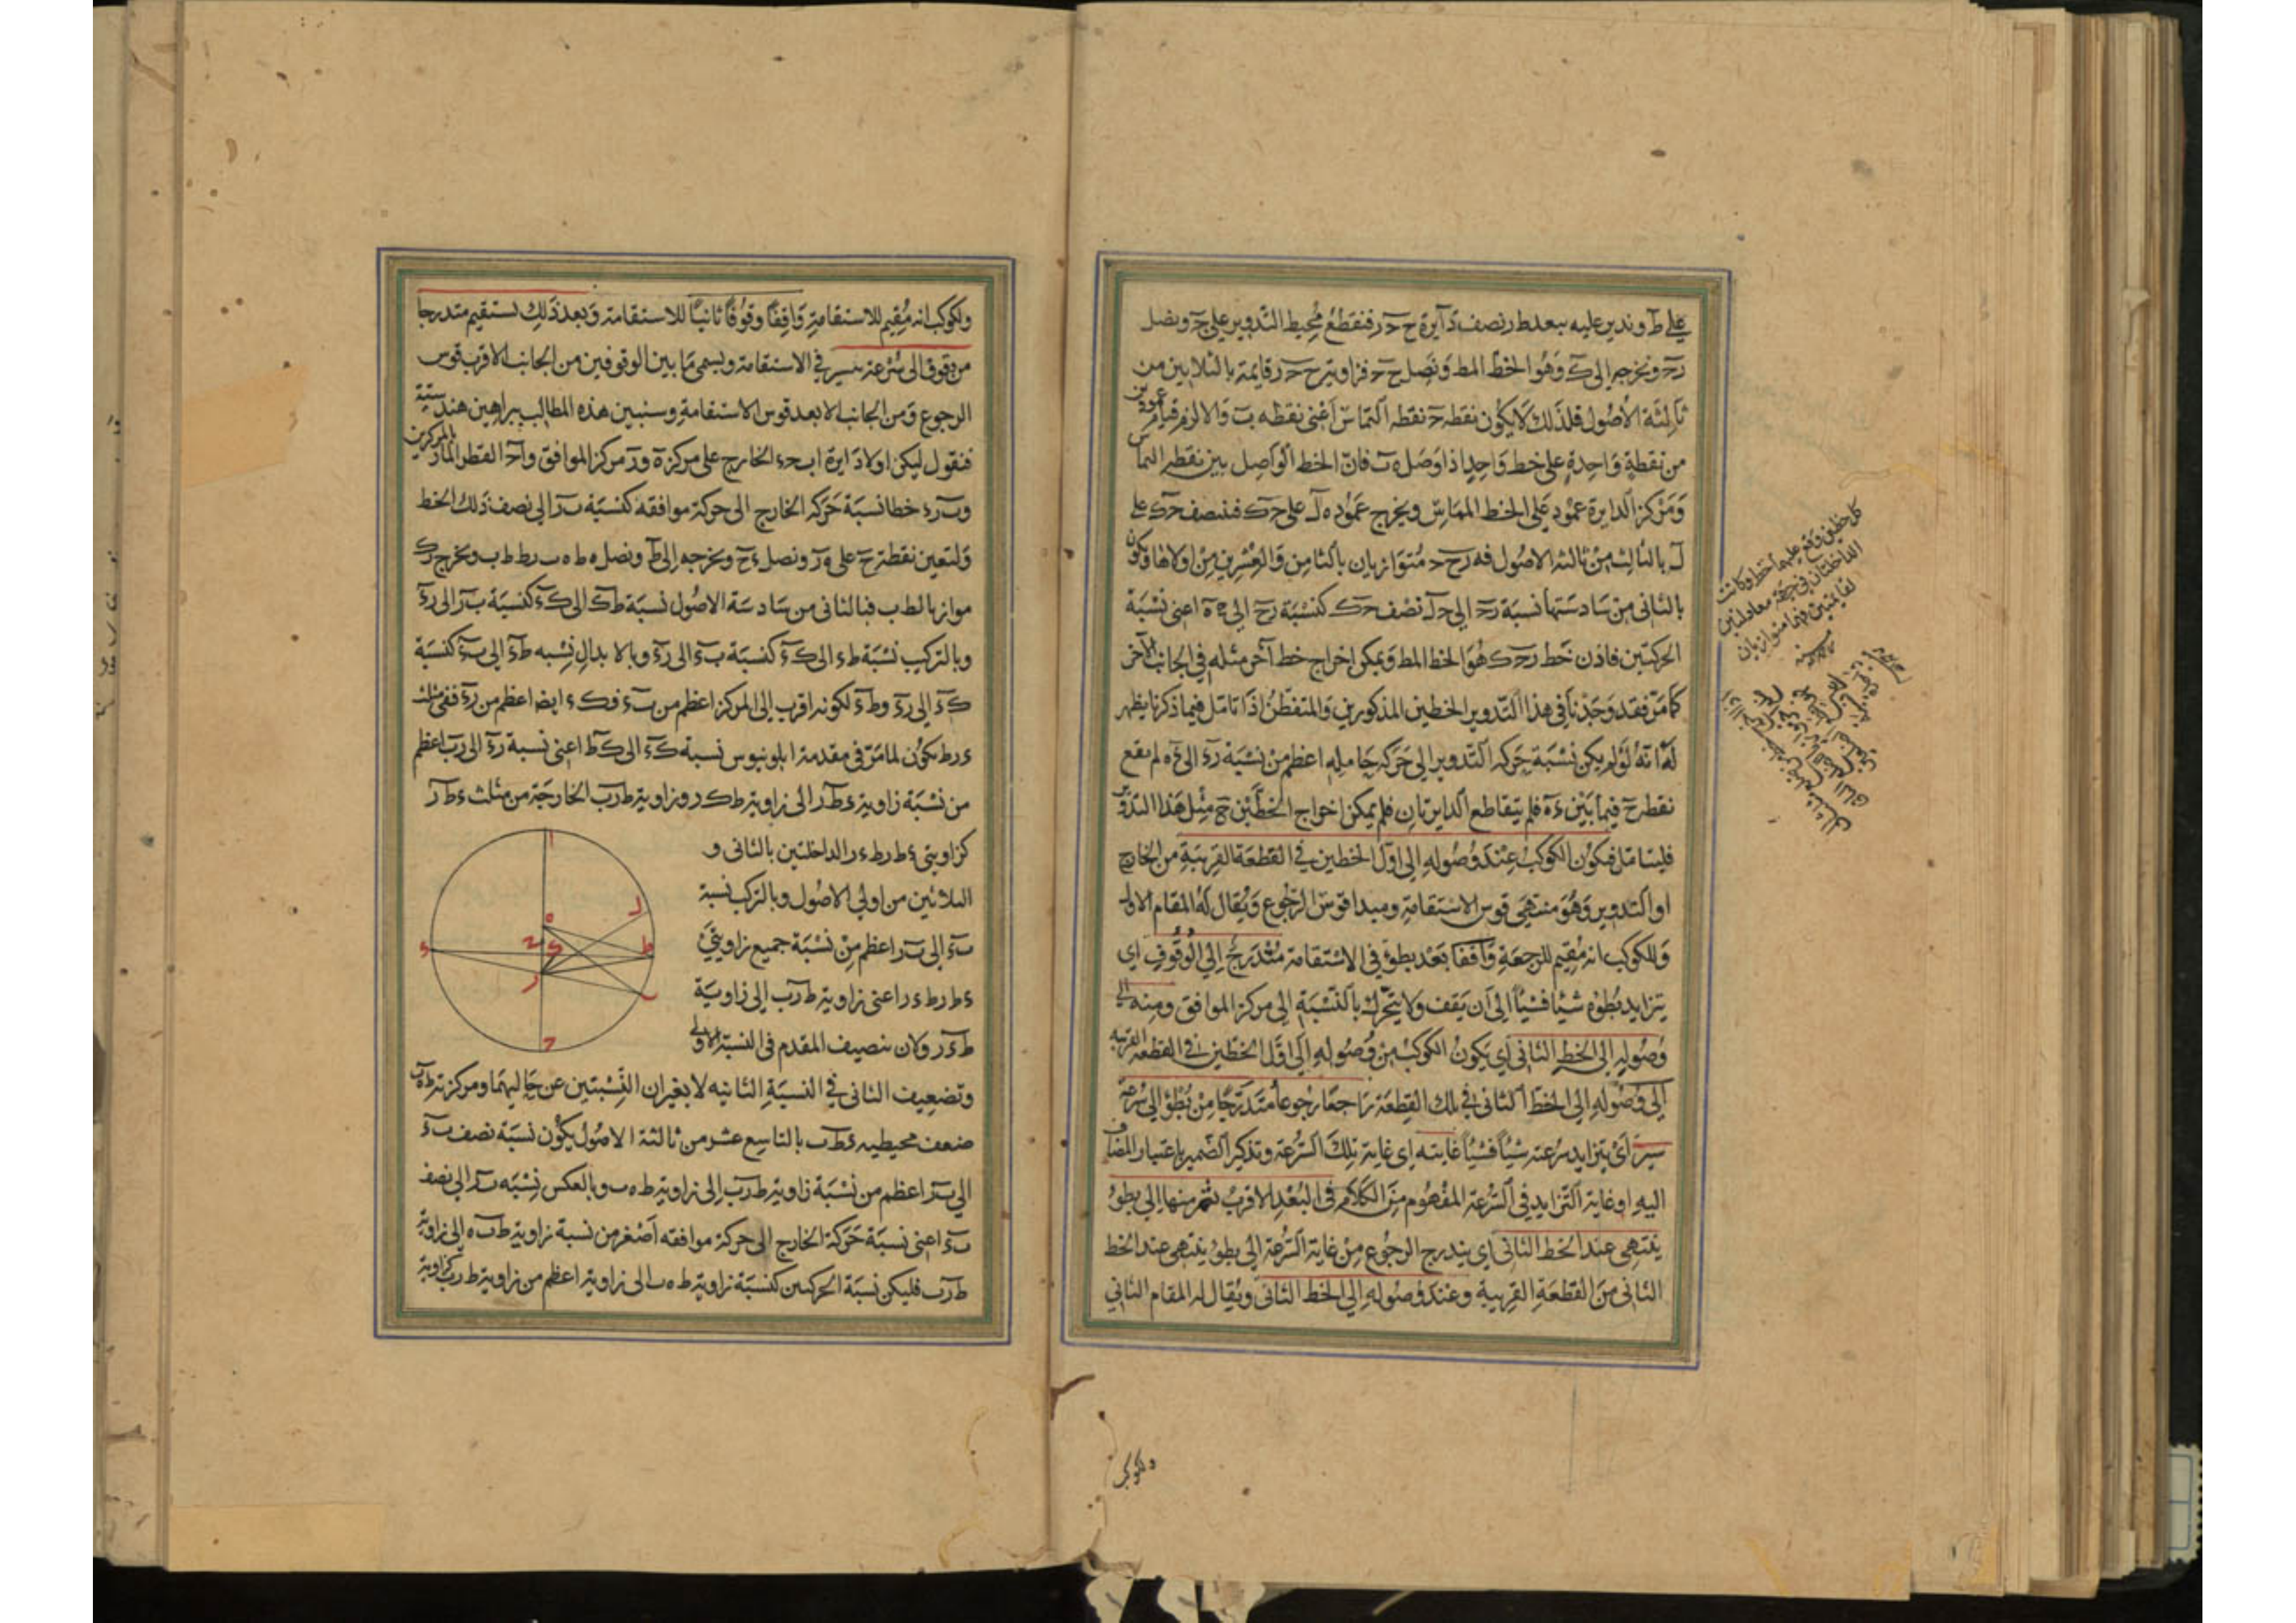 على ط وندير عليه ببعد ط ر نصف دايرة ح حـ ر فنقطع محيط التدوير على حـ ونصل
رحـ ونخرجه الى ك وهو الخط المط ونصل ح حـ فزاوية ح حـ ر قايمة بالثلاثين من
ثالثة الاصول فلذلك لا يكون نقطة حـ نقطة التماس اعنى نقطة ب والا لزم قيام عمودين
من نقطة واحدة على خط واحد اذا وصل ه ب فان الخط الواصل بين نقطة التماس
ومركز الدايرة عمود على الخط المماس ونخرج عمود ه ل على حـ ك فننصف حـ ك على
ل بالثالث من ثالثة الاصول فه ل ح حـ متوازيان بالثامن والعشرين من اولاها ويكون
بالثانى من سادستها نسبة رحـ الى حـ ل نصف حـ ك كنسبة رح الى ح ه اعنى نسبة
الحركتين فاذن خط رحـ ك هو الخط المط ويمكن اخراج خط آخر مثله فى الجانب الآخر
كما مر فقد وجدنا فى هذا التدوير الخطين المذكورين والمتفطن اذا تامل فيما ذكرنا يظهر
له انه لو لم يكن نسبة حركة التدوير الى حركة حامله اعظم من نسبة رء الى ء ه لم يقع
نقطة ح فيما بين ء ه فلم يتقاطع الدايرتان فلم يمكن اخراج الخطين فى مثل هذا التدوير
فليتامل فيكون الكوكب عند وصوله الى اول الخطين فى القطعة القريبة من الخارج
او التدوير وهو منتهى قوس الاستقامة ومبدا قوس الرجوع ويقال له المقام الاول
وللكوكب انه مقيم للرجعة واقفا بعد بطوء فى الاستقامة متدرج الى الوقوف اى
يتزايد بطوه شيئا فشيئا الى ان يقف ولا يتحرك بالنسبة الى مركز الموافق ومنه الى
وصوله الى الخط الثانى اى يكون الكوكب من وصوله الى اول الخطين فى القطعة القريبة
الى وصوله الى الخط الثانى فى تلك القطعة راجعا رجوعا متدرجا من بطؤ الى سرعة
سير اى يتزايد سرعته شيئا فشيئا غايته اى غاية تلك السرعة وتذكير الضمير باعتبار المضاف
اليه او غاية التزايد فى السرعة المفهوم من الكلام فى البعد الاقرب ثم منها الى بطؤ
ينتهى عند الخط الثانى اى يتدرج الرجوع من غاية السرعة الى بطؤ ينتهى عند الخط
الثانى من القطعة القريبة وعند وصوله الى الخط الثانى ويقال له المقام الثانى
وللكوكب
كل خطين وقع عليهما خط وكانت
الداخلتان فى جهة معادلتين
لقايمتين فهما متوازيان
وللكوكب انه مقيم للاستقامة واقفا وقوفا ثانيا للاستقامة وبعد ذلك يستقيم متدرجا
من وقوف الى سرعة سير فى الاستقامة ويسمى ما بين الوقوفين من الجانب الاقرب قوس
الرجوع ومن الجانب الابعد قوس الاستقامة وسنبين هذه المطالب ببراهين هندسية
فنقول ليكن اولا دايرة ا ب حـ ء الخارج على مركز ه ور مركز الموافق وا حـ القطر المار بالمركزين
وب ر ء خطا نسبة حركة الخارج الى حركة موافقه كنسبة ب ر الى نصف ذلك الخط
ولتعين نقطة ح على ه ر ونصل ء ح ونخرجه الى ط ونصل ه ط ه ب ر ط ط ب ونخرج ر ك
موازيا لط ب فبالثانى من سادسة الاصول نسبة ط ك الى ك ء كنسبة ب ر الى ر ء
وبالتركيب نسبة ط ء الى ك ء كنسبة ب ء الى ر ء وبالابدال نسبه ط ء الى ب ء كنسبة
ك ء الى ر ء وط ء لكونه اقرب الى المركز اعظم من ب ء فك ء ايضا اعظم من ر ء ففى مثلث
ء ر ط يكون لما مر فى مقدمة ابلونيوس نسبة ك ء الى ك ط اعنى نسبة ر ء الى ر ب اعظم
من نسبة زاوية ء ط ر الى زاوية ط ء ر وزاوية ط ر ب الخارجة من مثلث ء ط ر
كزاويتى ء ط ر ط ء ر الداخلتين بالثانى و
الثلاثين من اولى الاصول وبالتركيب نسبة
ب ء الى ب ر اعظم من نسبة جميع زاويتى
ء ط ر ط ء ر اعنى زاوية ط ر ب الى زاوية
ط ء ر ولان تنصيف المقدم فى النسبة الاولى
وتضعيف الثانى فى النسبة الثانيه لا يغيران النسبتين عن حاليهما ومركزية ط ه ب
ضعف محيطيه ء ط ب بالتاسع عشر من ثالثة الاصول يكون نسبة نصف ب ء
الى ب ر اعظم من نسبة زاوية ط ر ب الى زاوية ط ه ب وبالعكس نسبه ب ر الى نصف
ب ء اعنى نسبة حركة الخارج الى حركة موافقه اصغر من نسبة زاوية ط ب ه الى زاوية
ط ر ب فليكن نسبة الحركتين كنسبة زاوية ط ه ب الى زاوية اعظم من زاوية ط ر ب كزاوية
ا
ل
ه
ح
ك
ط
ء
ر
ب
حـ